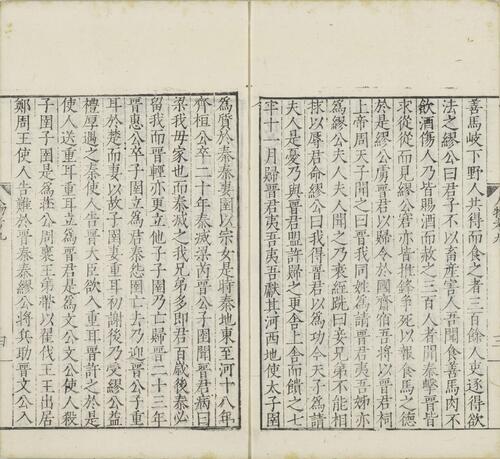 善馬岐下野人共得而食之者三百餘人吏逐得欲
法之繆公曰君子不以畜產害人吾聞食善馬肉不
飲酒傷人乃皆賜酒而赦之三百人者聞秦擊晉皆
求從從而見繆公窘亦皆推鋒爭死以報食馬之德
於是繆公虜晉君以歸令於國齊宿吾將以晉君祠
上帝周天子聞之曰晉我同姓為請晉君夷吾姊亦
為繆公夫人夫人聞之乃衰絰跣曰妾兄弟不能相
救以辱君命繆公曰我得晉君以為功今天子為請
夫人是憂乃與晉君盟許歸之更舍上舍而饋之七
牢十一月歸晉君夷吾夷吾獻其河西地使太子圉
三
為質於秦秦妻圉以宗女是時秦地東至河十八年
齊桓公卒二十年秦滅梁芮晉公子圉聞晉君病曰
梁我母家也而秦滅之我兄弟多即君百歲後秦必
留我而晉輕亦更立他子子圉乃亡歸晉二十三年
晉惠公卒子圉立為君秦怨圉亡去乃迎晉公子重
耳於楚而妻以故子圉妻重耳初謝後乃受繆公益
禮厚遇之秦使人告晉大臣欲入重耳晉許之於是
使人送重耳重耳立為晉君是為文公文公使人殺
子圉子圉是為懷公周襄王弟帶以翟伐王王出居
鄭周王使人告難於晉秦秦繆公將兵助晉文公入
四